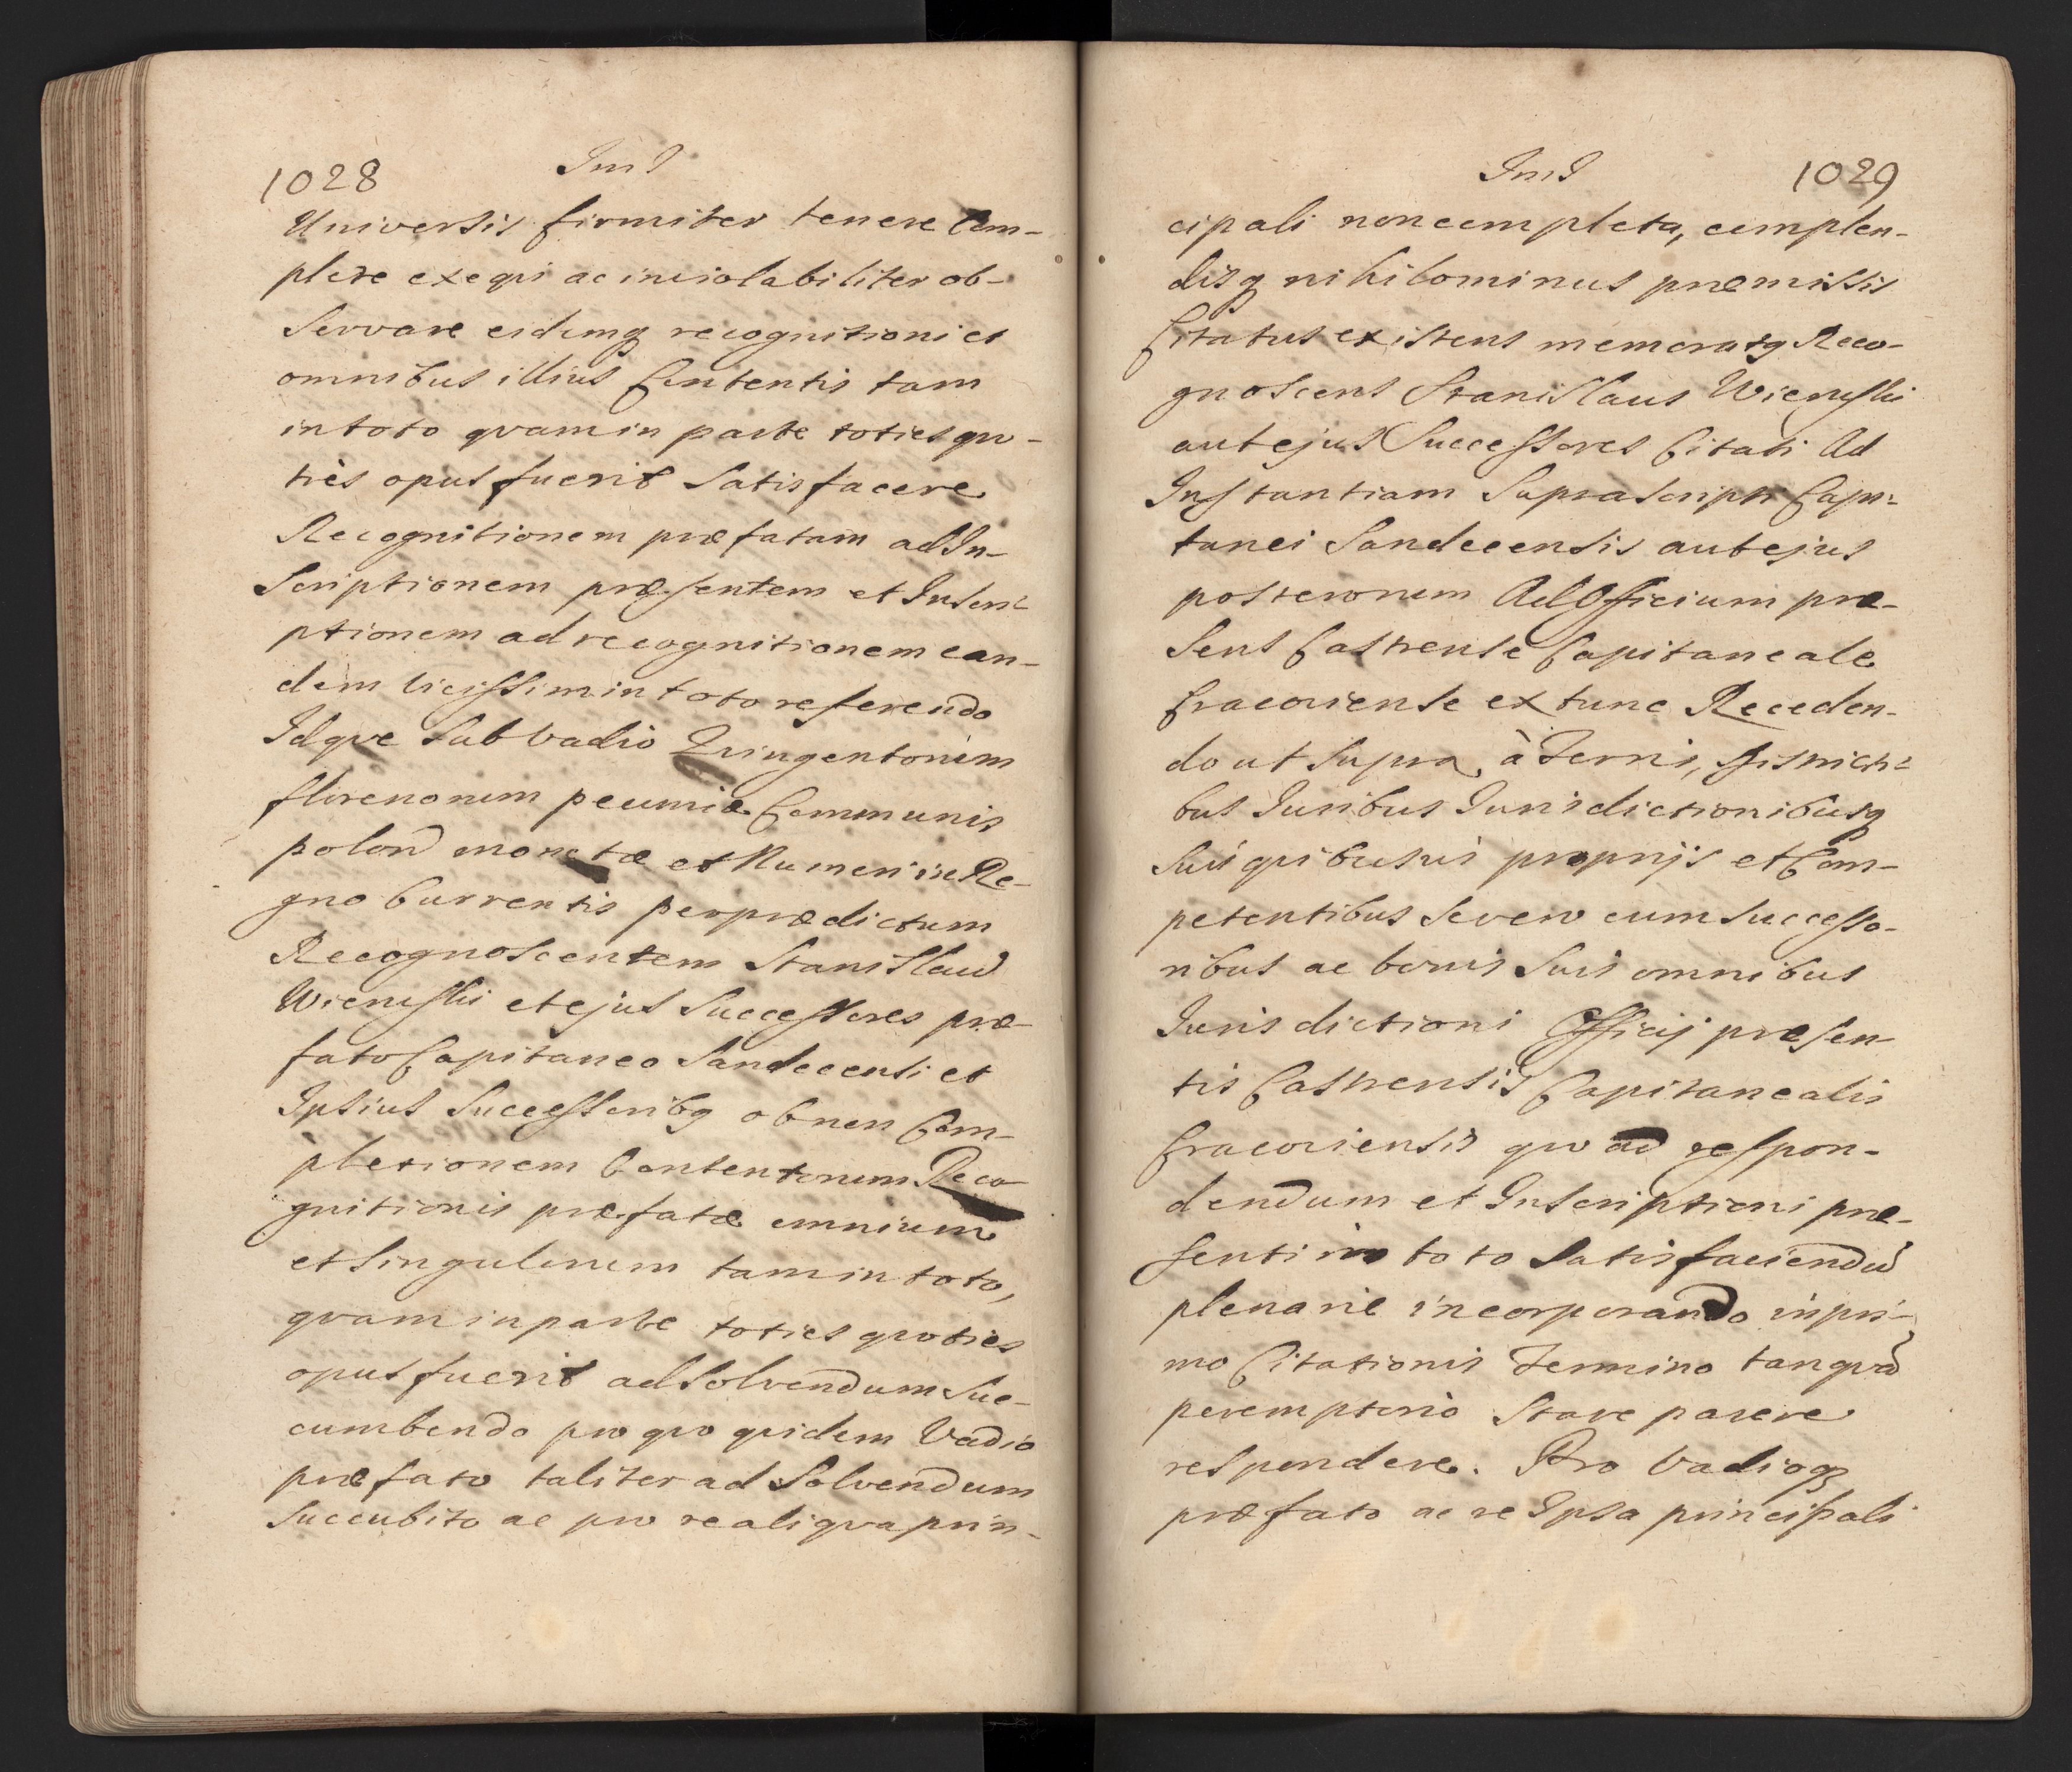 1028
Universis firmiter tenere Com-
plere exeqvi ac inviolabiliter ob-
servare eidemq recognitioni et
omnibus illius Contentis tam
in toto qvam in parte toties qvo-
ties opus fuerit Satisfacere
Recognitionem præfatam ad In-
scriptionem præsentem et Inscri-
ptionem ad recognitionem ean-
dem vicissim in toto referendo
Idqve sub Vadio Qvingentorum
florenorum pecuniæ Communis
polon monetæ et Numeri in Re-
gno Currentis per prædictum
Recognoscentem Stanislaū
et ejus Successores præ-
fato Capitaneo Sandecensi et
Ipsius Successoribq ob non Com-
pletionem Contentorum Reco-
gnitionis præfatæ omnium
et singulorum tam in toto,
qvam in parte toties qvoties
opus fuerit ad solvendum suc-
cumbendo pro qvo qvidem Vadio
præfato taliter ad solvendum
succubito ac pro re aliqva prin-
1029
cipali non completa, complen-
disq nihilominus præmissis
Citatus existens memoratq Reco-
gnoscens Stanislaus
aut ejus Successores Citati Ad
Instantiam Suprascripti Capi-
tanei Sandecensis aut ejus
posterorum Ad Officium præ-
sens Castrense Capitaneale
Cracoviense ex tunc Receden-
do ut supra à Terris, Districti-
bus Iuribus Iurisdictionibusq
suis qvibusvis proprijs et Com-
petentibus se vero cum successo-
ribus ac bonis suis omnibus
Iurisdictioni Officij præsen-
tis Castrensis Capitanealis
Cracoviensis qvo ad respon-
dendum et Inscriptioni præ-
senti in toto satisfaciendū
plenarie incorporando in pri-
mo Citationis Termino tanqvā
peremptorio Stare parere
respondere. Pro Vadioq
præfato ac re Ipsa principali